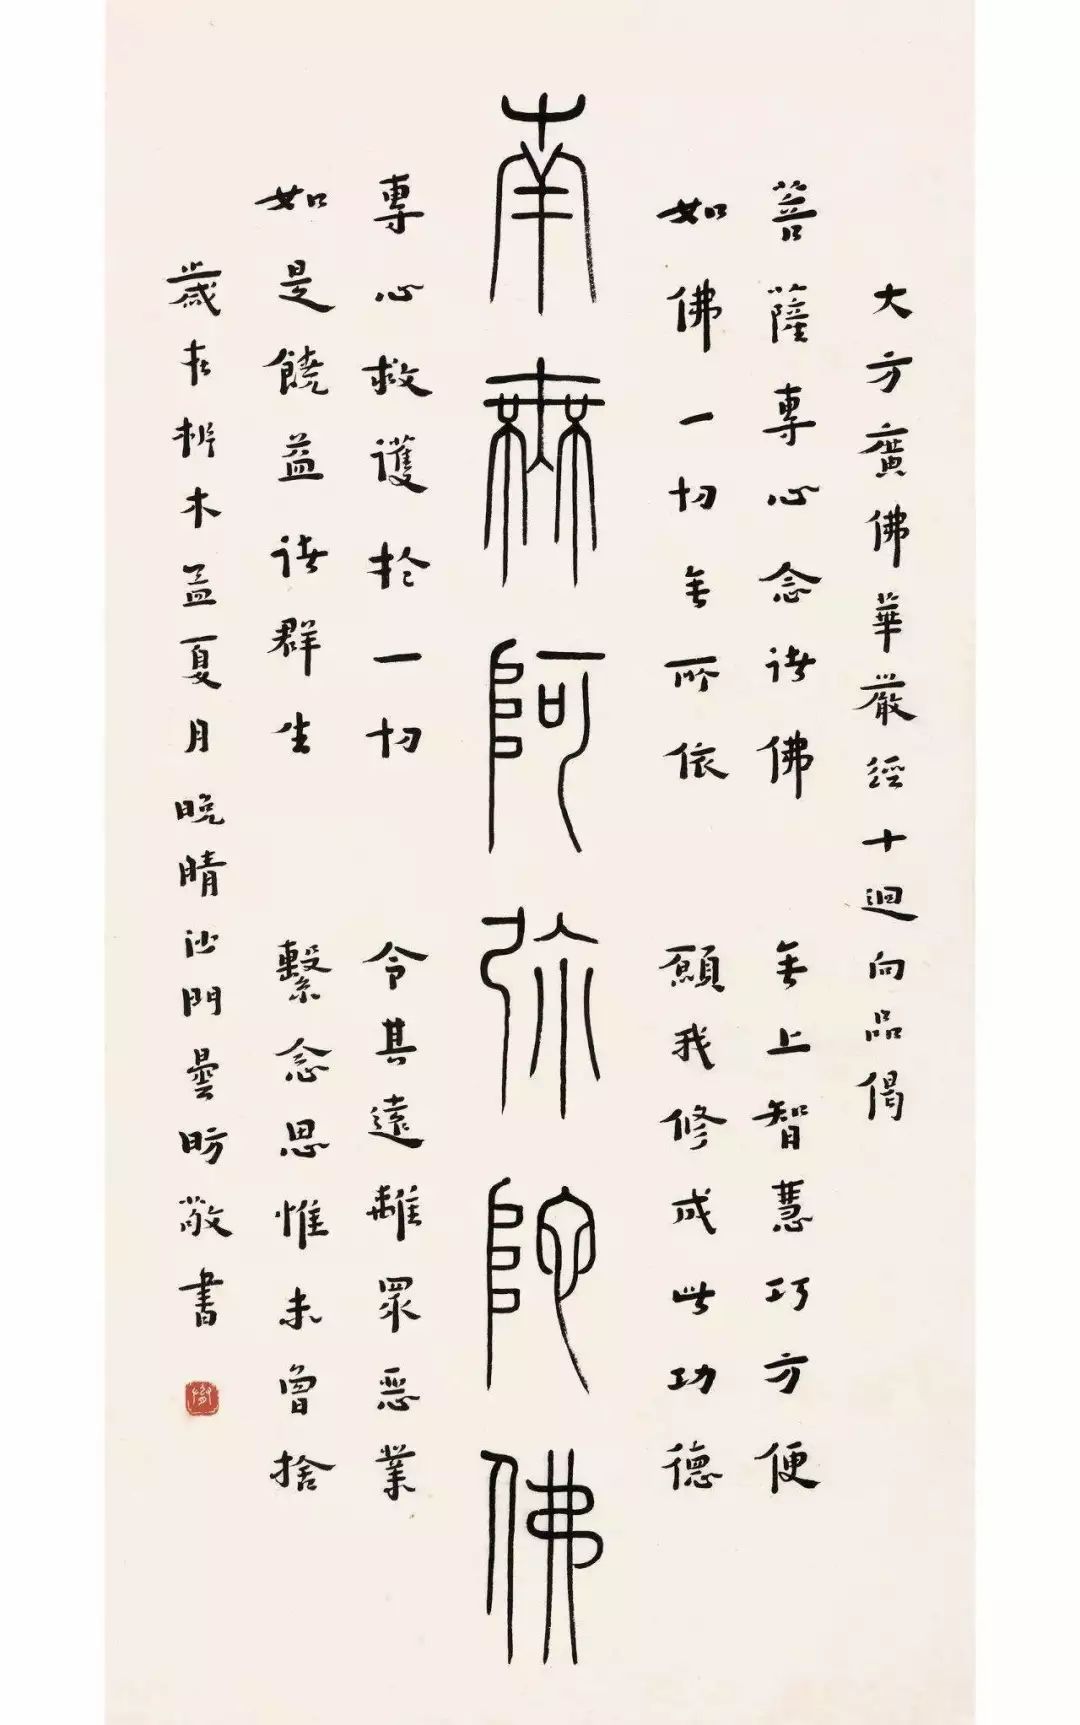 大方廣佛華嚴經十迴向品偈
菩薩專心念諸佛　無上智慧巧方便
如佛一切無所依　願我修成此功德
南無阿弥陀佛
專心救護於一切　令其遠離眾惡業
如是饒益諸群生　繫念思惟未曾捨
歲在析木孟夏月晚晴沙門曇昉敬書